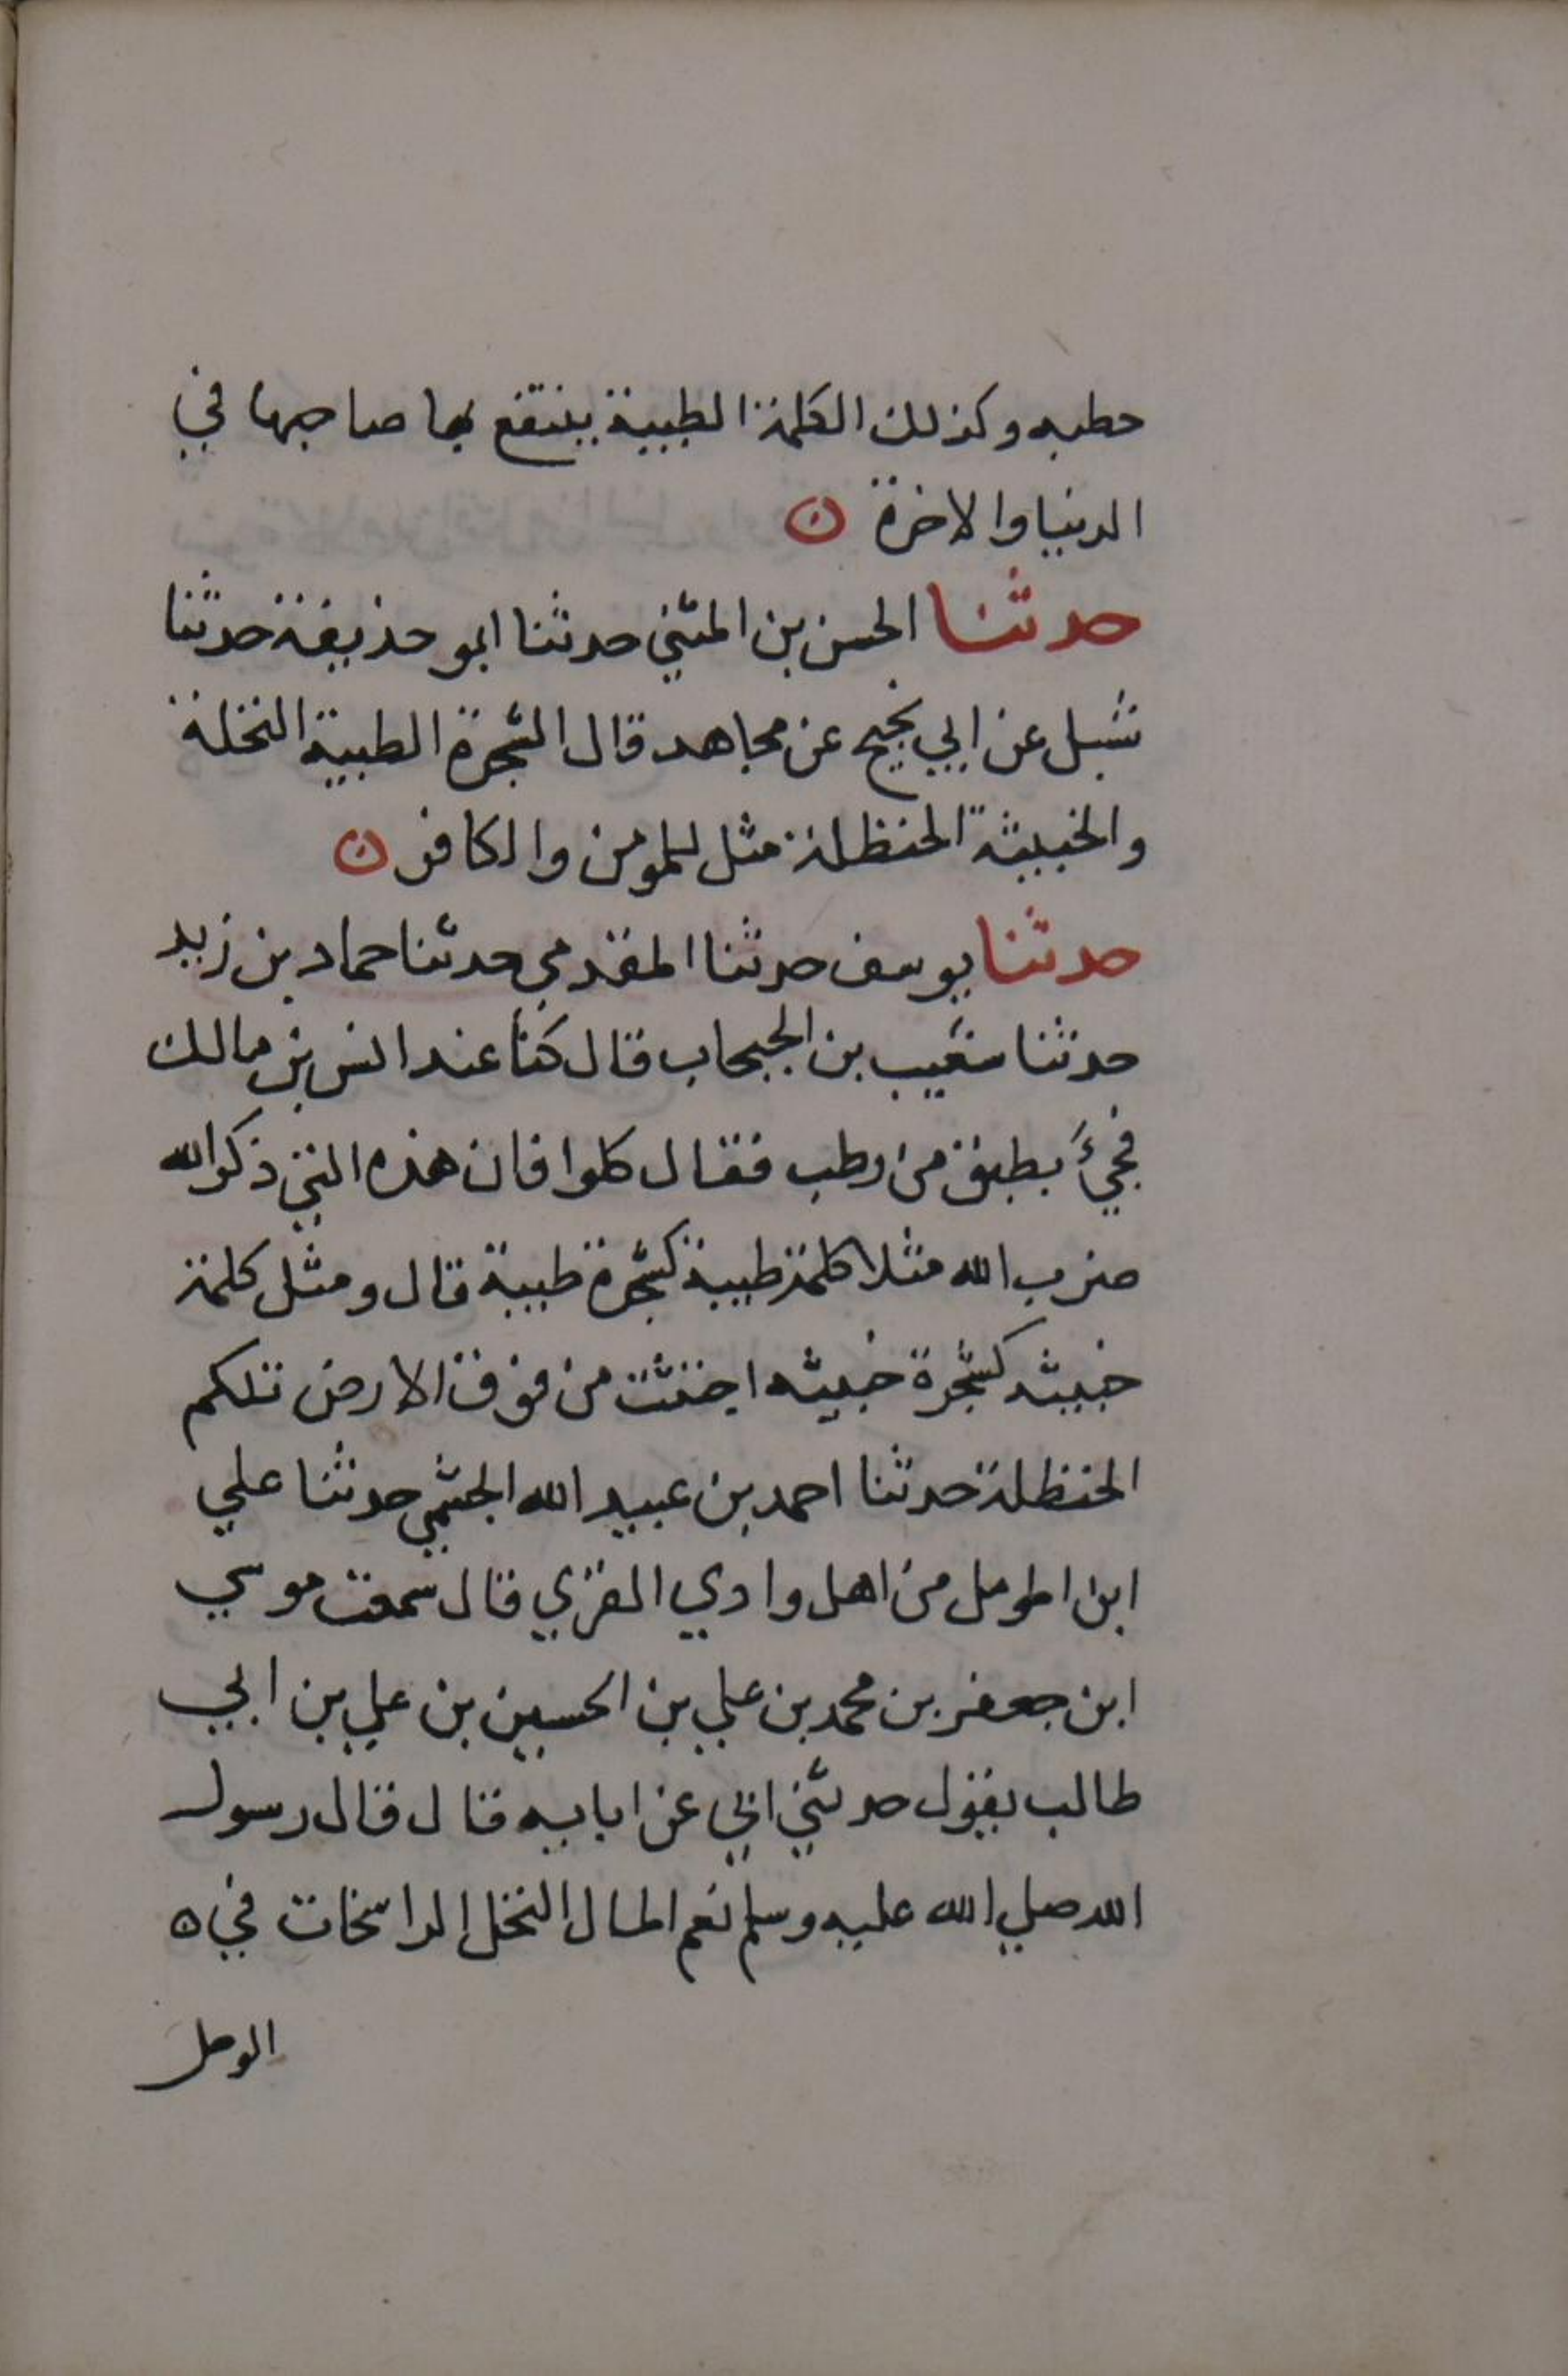 حطبه وكذلك الكلمة الطيبة ينتفع بها صاحبها في
الدنيا والاخرة
حدثنا الحسن بن المثني حدثنا ابو حذيفة حدثنا
شبل عن ابي نجيح عن مجاهد قال الشجرة الطيبة النخلة
والخبيثة الحنظلة مثل للمومن والكافر
حدثنا يوسف حدثنا المقدمي حدثنا حماد بن زيد
حدثنا شعيب بن الحبحاب قال كنا عند انس بن مالك
فجيءَ بطبق من رطب فقال كلوا فان هذه التي ذكر الله
ضرب الله مثلا كلمة طيبة كشجرة طيبة قال ومثل كلمة
خبيثه كشجرة خبيثه اجتثت من فوق الارض تلكم
الحنظلة حدثنا احمد بن عبيد الله الجشمي حدثنا علي
ابن المومل من اهل وادي القري قال سمعت موسي
ابن جعفر بن محمد بن علي بن الحسين بن علي بن ابي
طالب يقول حدثني ابي عن ابايه قال قال رسول
الله صلي الله عليه وسلم نعم المال النخل الراسخات في ه
الوحل